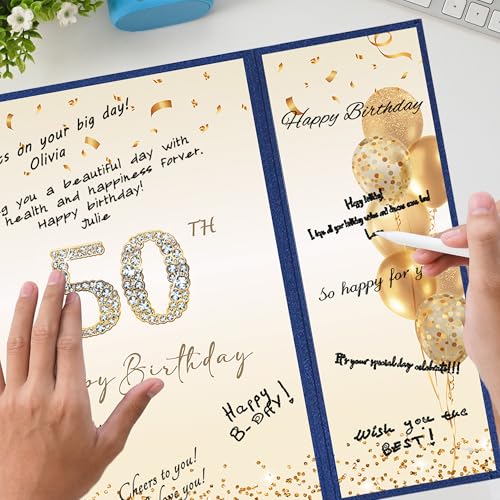 s on your big day!
Olivia
g you a beautiful day with
health and happiness forver.
Happy birthday!
Julie
50TH
py Birthday
Happy
B-DAY!
Cheers to you!
love you!
Happy Birthday
Happy birthday!
I hope all your birthday wishes and dreams come true!
So happy for y
It's your special day celebrate!!!
Wish you the
BEST!